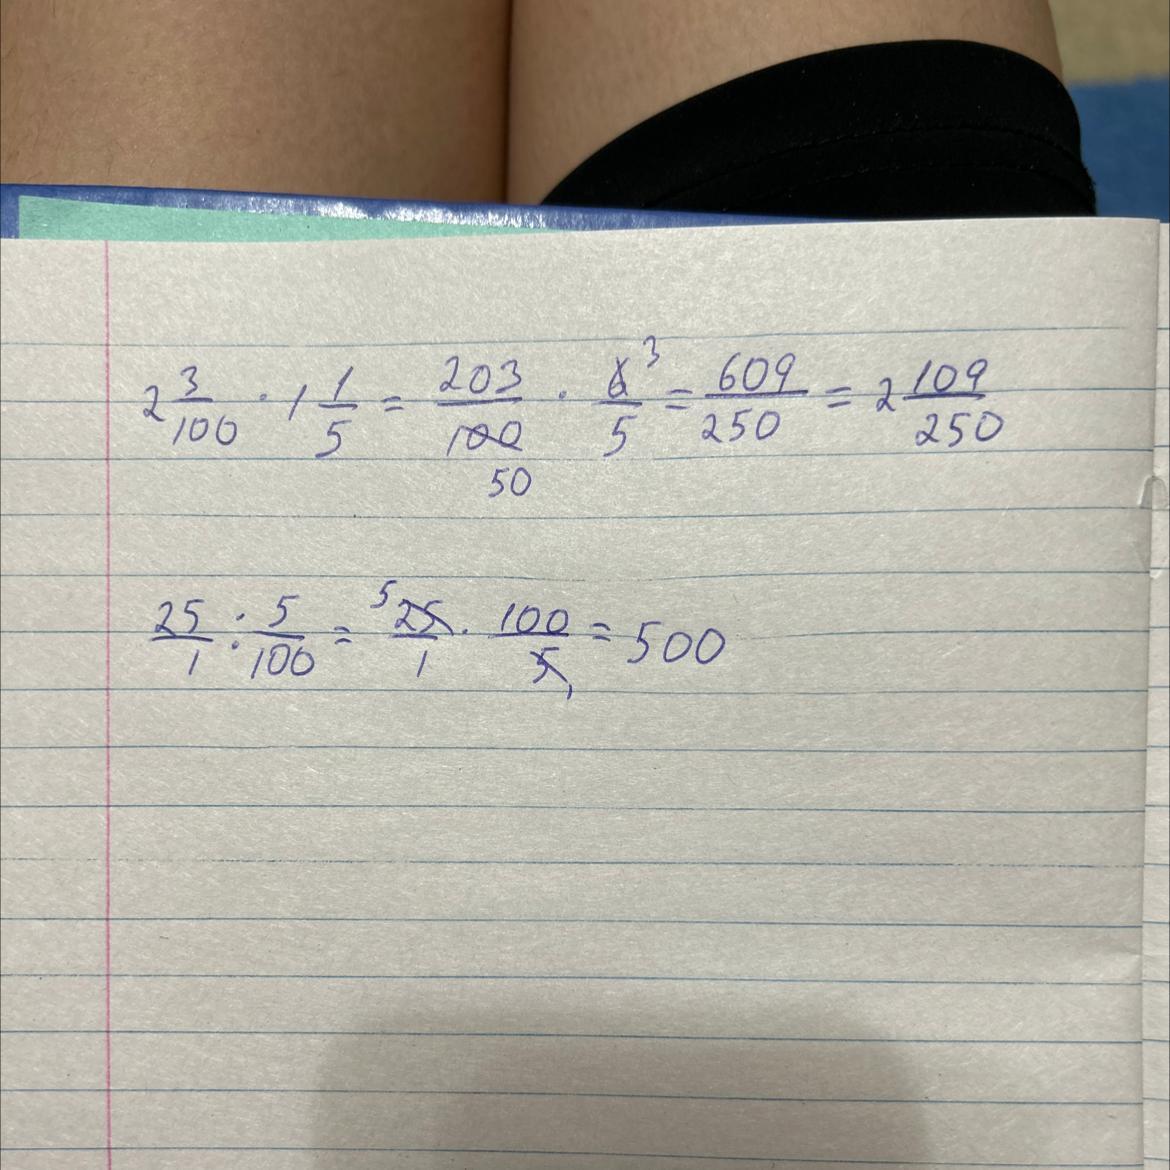 2 3/100 · 1 1/5 = 203/100 50 · 6/5 3 = 609/250 = 2 109/250
25/1 : 5/100 = 5 25/1 · 100/5 1 = 500